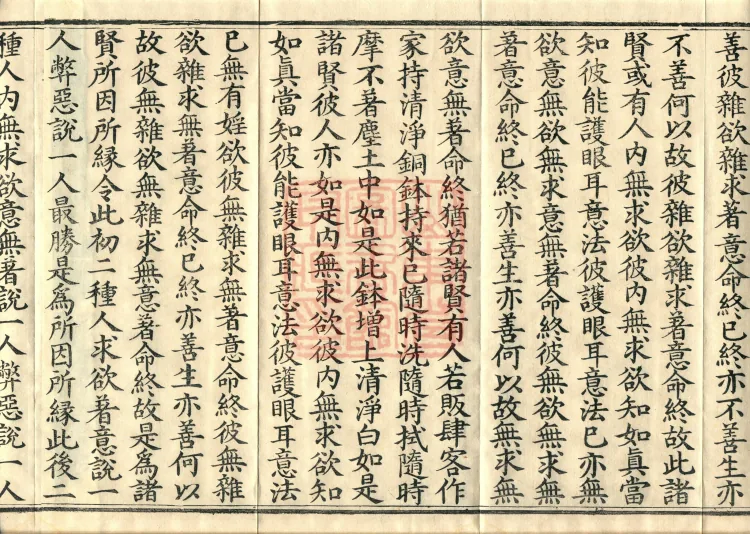 善彼雜欲雜求著意命終已終亦不善生亦
不善何以故彼雜欲雜求著意命終故此諸
賢或有人內無求欲彼內無求欲知如眞當
知彼能護眼耳意法彼護眼耳意法已亦無
欲意無欲無求意無著命終彼無欲無求無
著意命終已終亦善生亦善何以故無求無
欲意無著命終猶若諸賢有人若販肆客作
家持清淨銅鉢持來已隨時洗隨時拭隨時
摩不著塵土中如是此鉢增上清淨白如是
諸賢彼人亦如是內無求欲彼內無求欲知
如眞當知彼能護眼耳意法彼護眼耳意法
已無有婬欲彼無雜求無著意命終彼無雜
欲雜求無著意命終已終亦善生亦善何以
故彼無雜欲無雜求無意著命終故是為諸
賢所因所緣令此初二種人求欲著意說一
人弊惡說一人最勝是為所因所緣此後二
種人內無求欲意無著說一人弊惡說一人